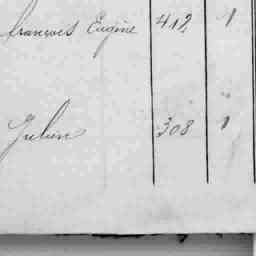 françois Eugène 412 1
Julien 308 1